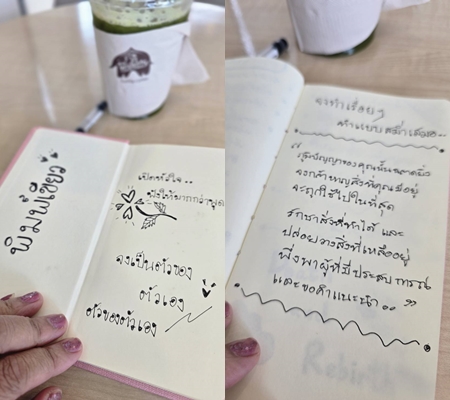 พิมพ์เขียว
เปิดหัวใจ..
ให้มากกว่าพูด
จงเป็นตัวของ
ตัวเอง
ตัวของตัวเอง
จงทำเรื่อยๆ
ทำแบบสม่ำเสมอ..
"
ของคุณนั้น
จงกล้าหาญสิ่งที่คุณมีอยู่
จะถูกใช้ไปในที่สุด
รักษาสิ่งที่ทำได้ และ
ปล่อยวางสิ่งที่เหลืออยู่
พึ่งพาผู้ที่มีประสบการณ์
และขอคำแนะนำ.. "
Rebirth